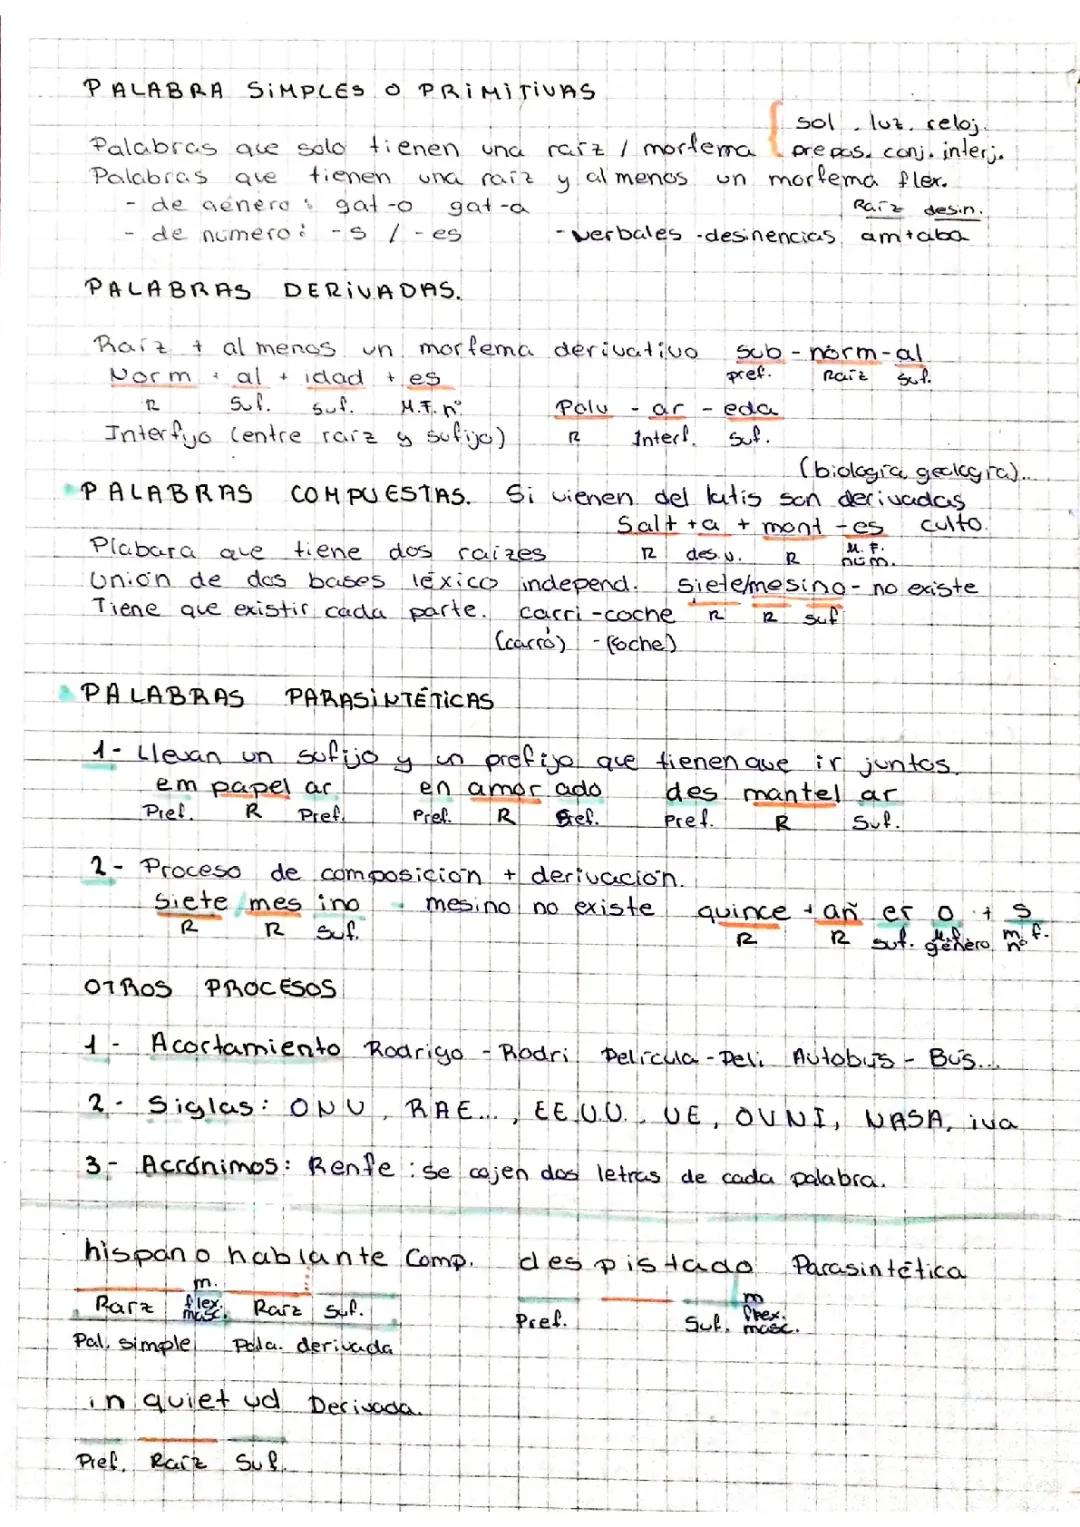 PALABRA SIMPLES O PRIMITIVAS
sol, luz, reloj.
Palabras que solo tienen una raíz / morfema prepos. conj. interj.
Palabras que tienen una raíz y al menos un morfema flex.
- de género: gat-o gat-a Raíz desin.
- de número: -s / -es - verbales - desinencias am+aba
PALABRAS DERIVADAS.
Raíz + al menos un morfema derivativo sub - norm - al
Norm + al + idad + es pref. Raíz suf.
R Suf. suf. M.F. nº Polv - ar - eda
Interfijo (entre raíz y sufijo) R Interf. suf.
(biología, geología)...
PALABRAS COMPUESTAS. Si vienen del latis son derivadas
Salt + a + mont - es culto.
Plabara que tiene dos raízes R des.v. R M.F. núm.
Unión de dos bases léxico independ. siete/mesino - no existe
Tiene que existir cada parte. carri-coche R R suf
(carro) - (coche)
PALABRAS PARASINTÉTICAS
1- Llevan un sufijo y un prefijo que tienen que ir juntos.
em papel ar en amor ado des mantel ar
Pref. R Pref. Pref. R Pref. Pref. R Suf.
2- Proceso de composición + derivación.
siete/mes ino - mesino no existe quince + añ er o + s
R R suf. R R suf. M.f. género m. f. nº
OTROS PROCESOS
1- Acortamiento Rodrigo - Rodri Película - Peli Autobús - Bus...
2- Siglas: ONU, RAE..., EE.UU., UE, OVNI, NASA, iva
3- Acrónimos: Renfe: se cojen dos letras de cada palabra.
hispano hablante Comp. des pis tado Parasintética
Raíz m. flex. masc. Raíz suf. Pref. Suf. m flex. masc.
Pal. simple Pala. derivada
in quiet ud Derivada.
Pref. Raíz Suf.